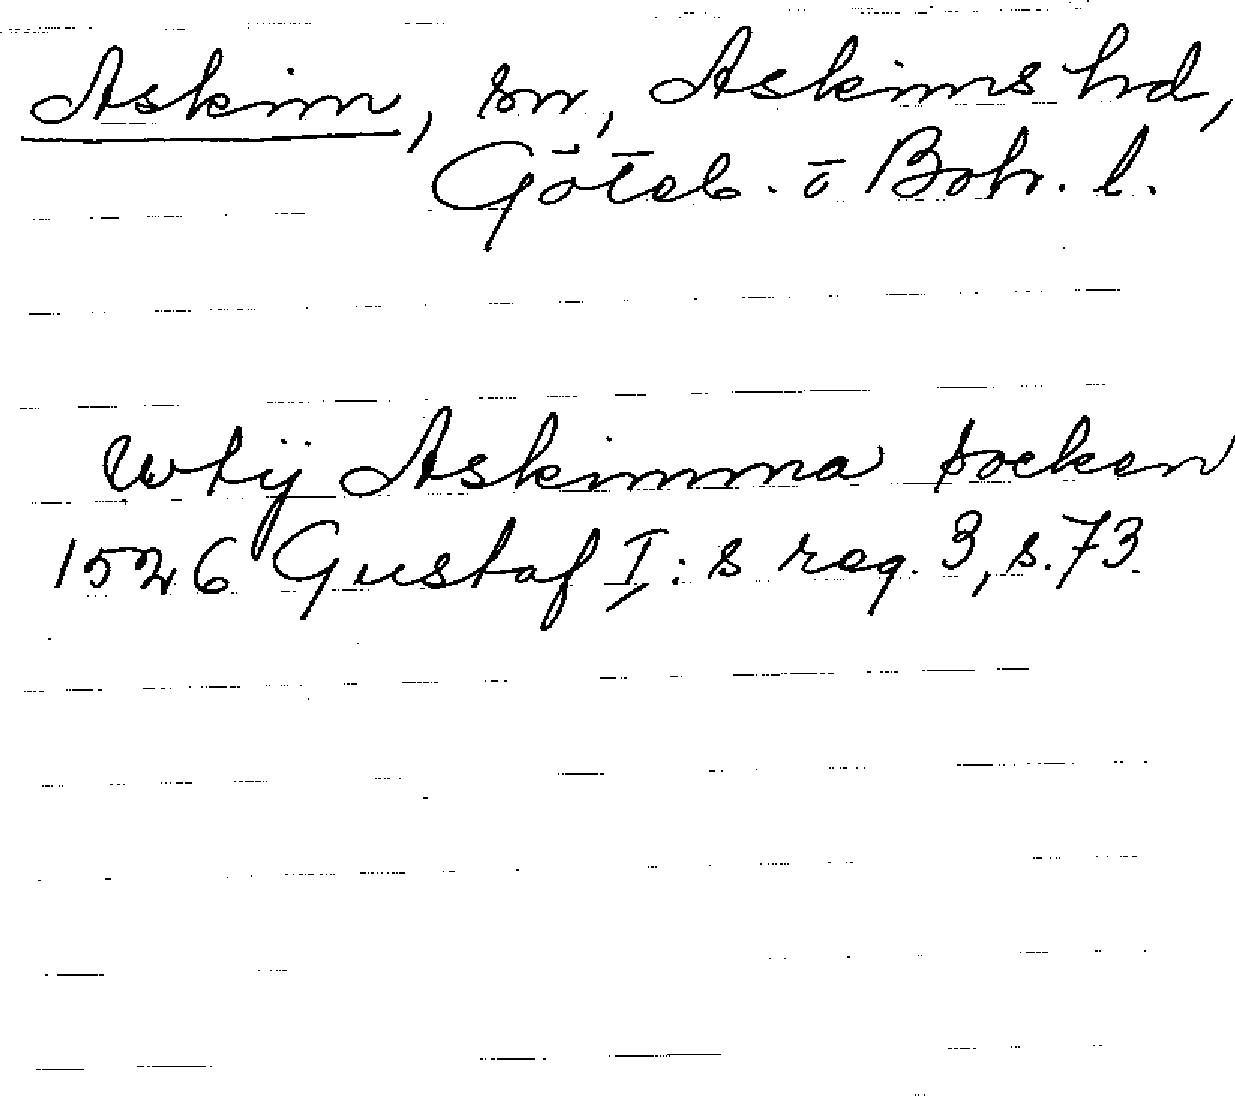 Askim, sn, Askims hd,
Göteb. o Boh. l.
wtij Askimma socken
1526 Gustaf I:s reg. 3, s. 73.